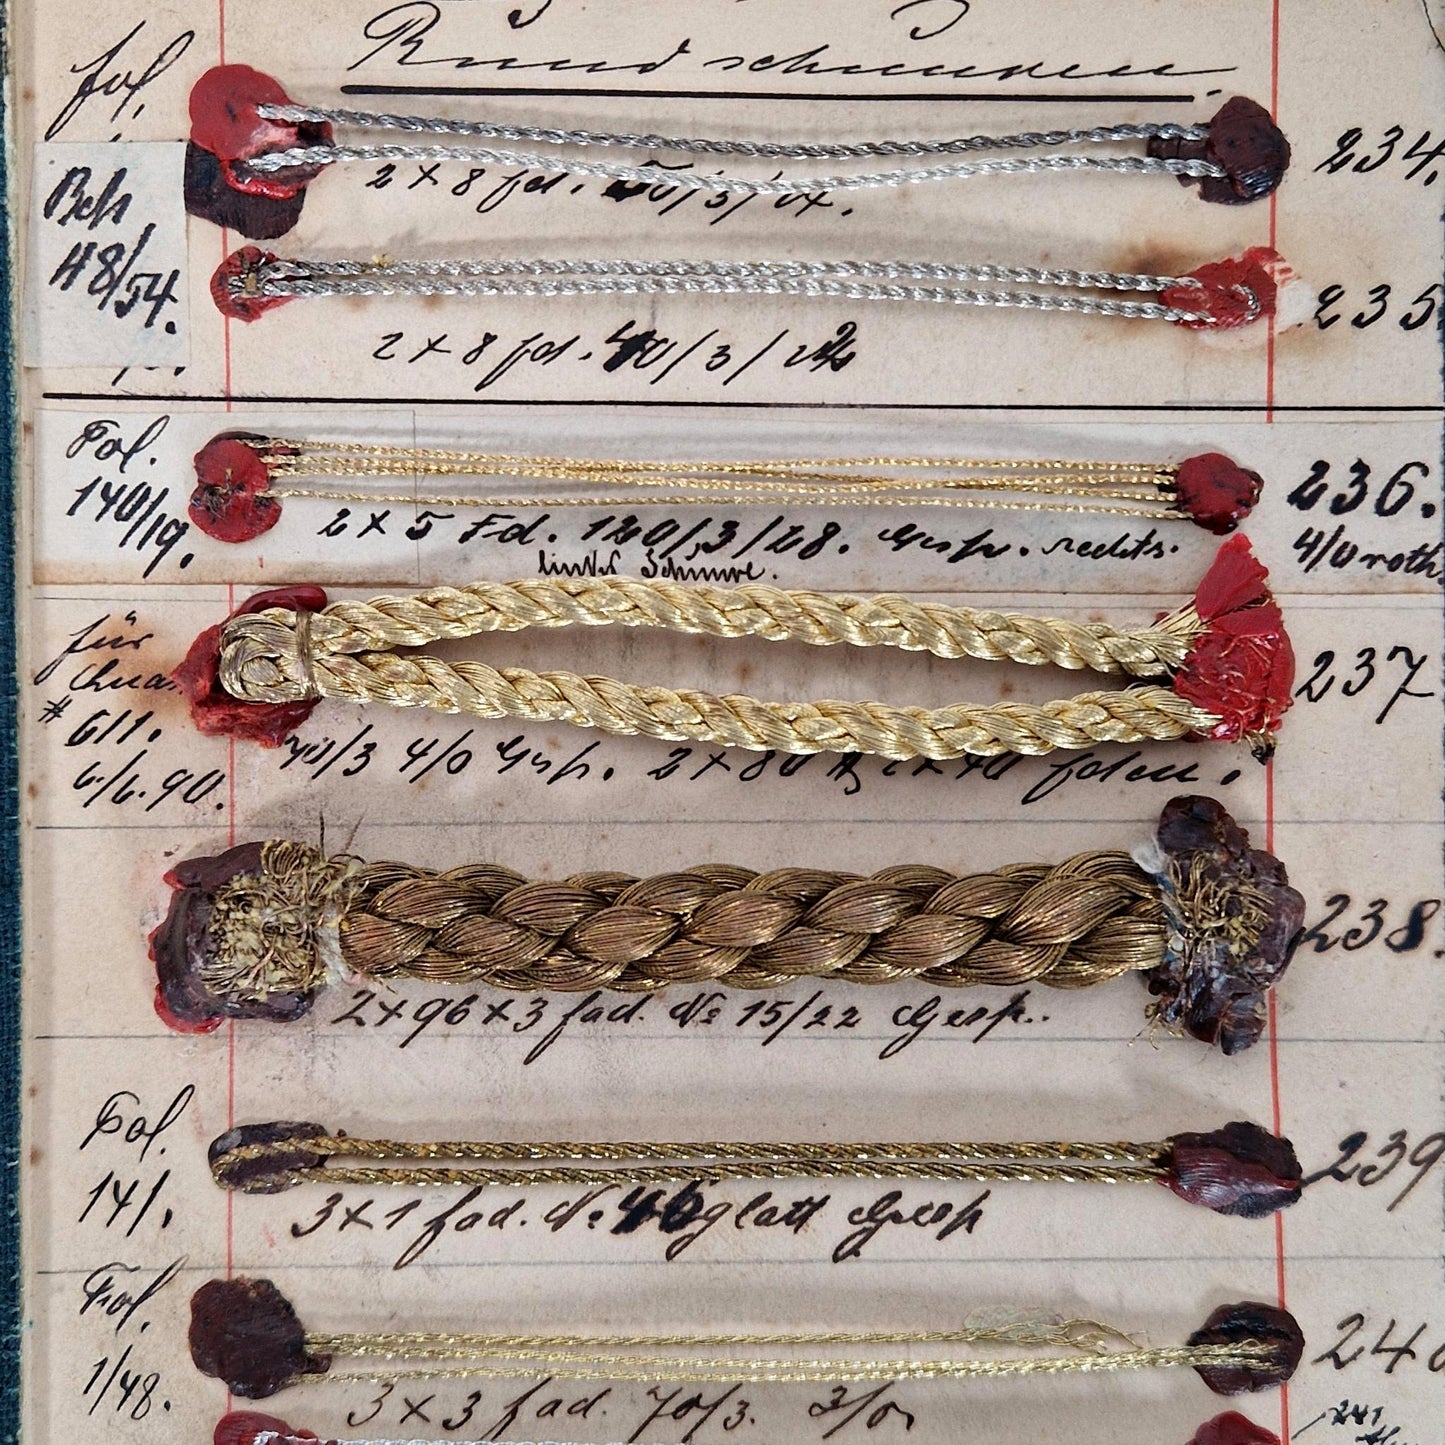 Rundschnüren.
fol.
234.
2 x 8 fd.
Bch
48/54.
235
2 x 8 fd. 40/3/
Fol.
140/19.
236.
4/0 roth
2 x 5 Fd. 120/3/28. Gesp. rechts.
linke Schnüre.
für
# 611.
6/6.90.
237
40/3 4/0 Gesp. 2 x 80 2 x 40 fden.
238.
2 x 96 x 3 fad. No 15/22 Gesp..
Fol.
141.
239
3 x 1 fad. No 46 glatt Gesp
Fol.
1/48.
240
3 x 3 fad. 70/3. 3/0
241